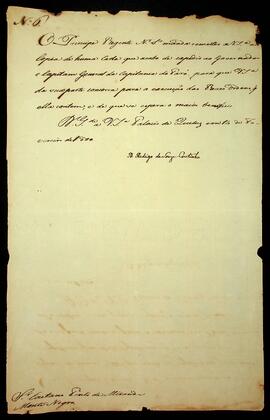 Nº 6
O Principe Regente N. Sr. manda remetter a V. Sª a
Copia de huma Carta que acaba de expedir ao Governador
e Capitaõ General da Capitania do Pará, para que V. Sª
da sua parte concorra para a execuçaõ das Reaes Ordens, q
ella contem, e de que se espera o maior beneficio.
Ds. Gde. a V. Sª Palacio de Queluz em
de 1800
D. Rodrigo de Souza Coutinho
Sr. Caetano Pinto de Miranda
Monte Negro